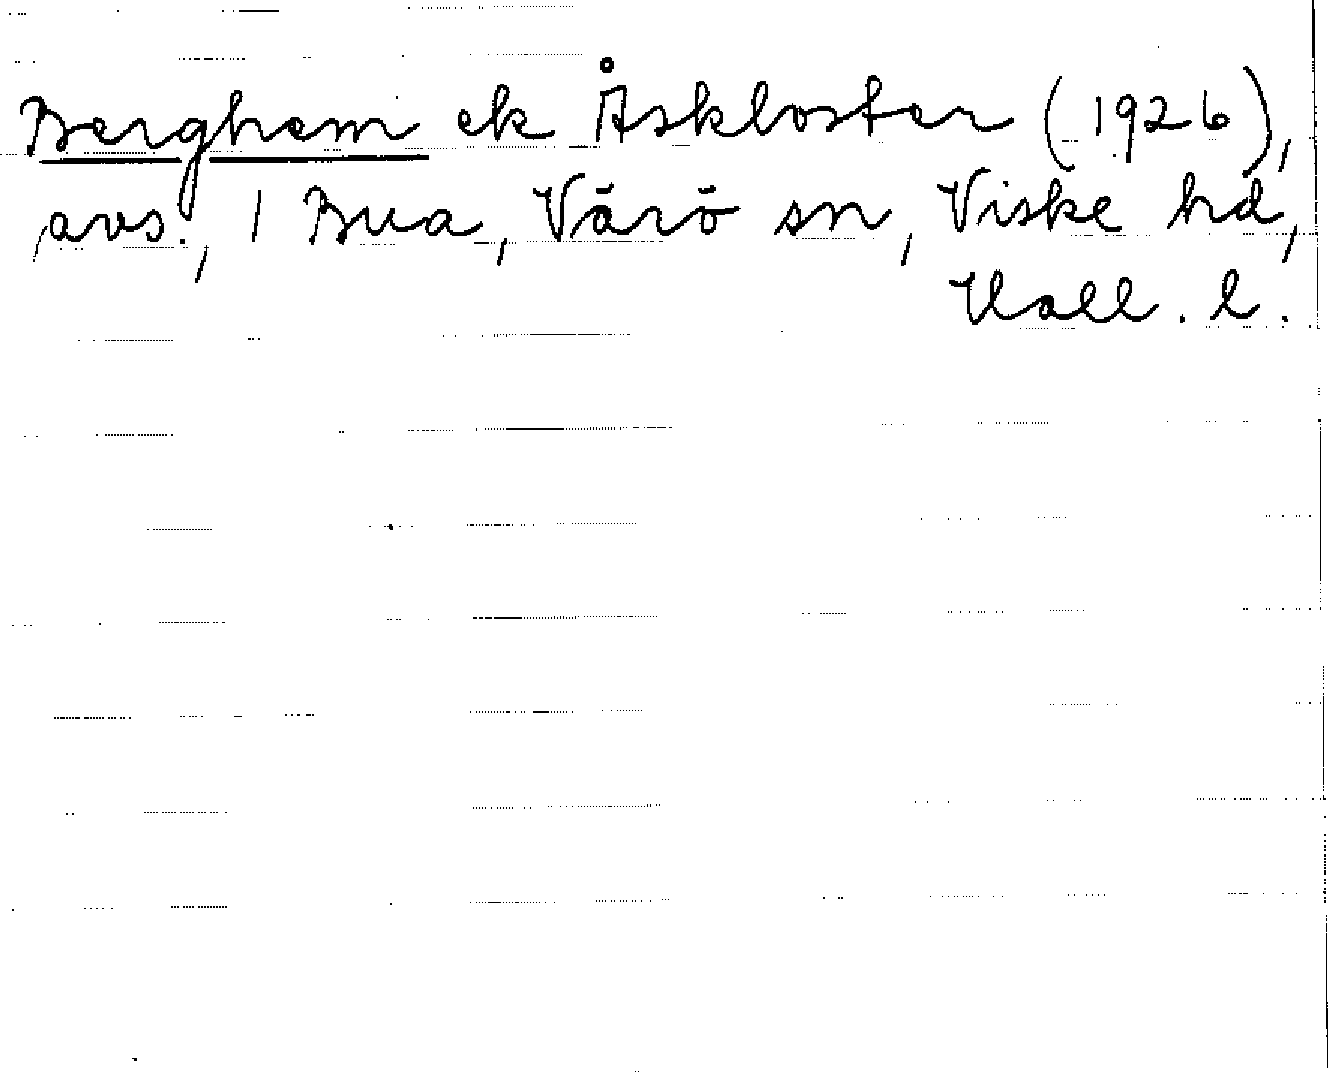 Berghem ek Åskloster (1926),
avs., 1 Bua, Värö sn, Viske hd,
Hall. l.